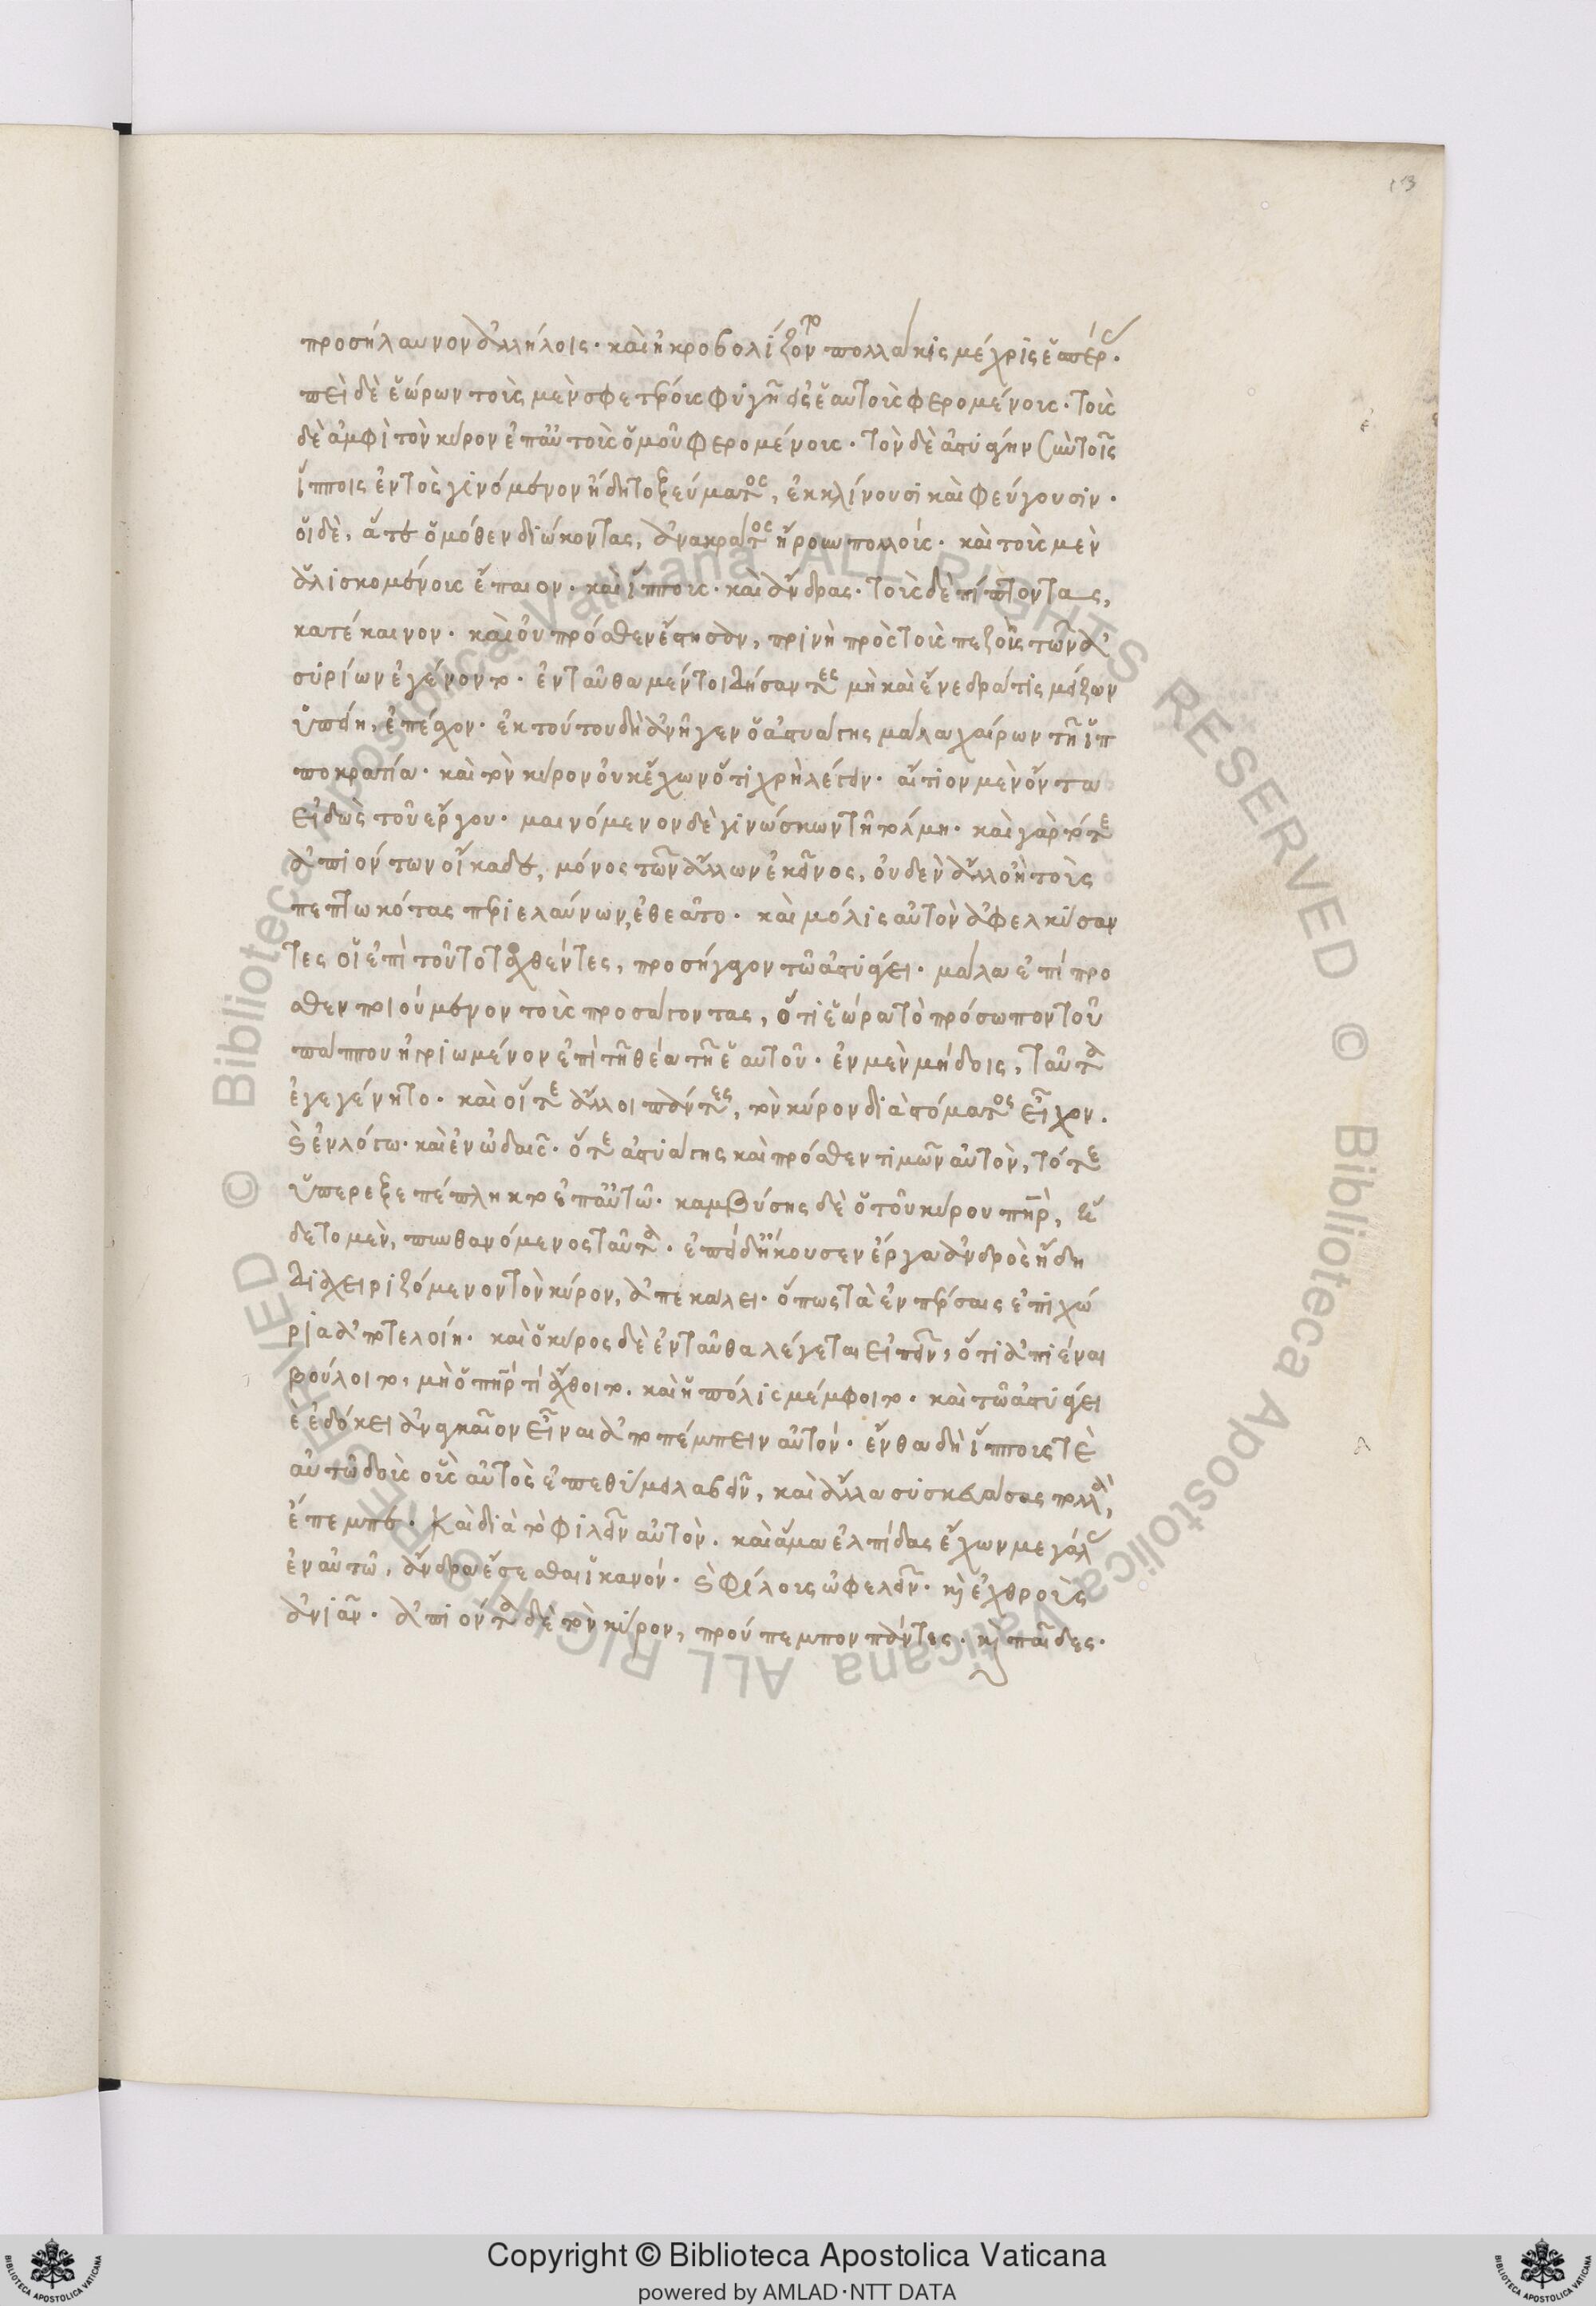 113
προσήλαυνον ἀλλήλοις· καὶ ἠκροβολίζοντο πολλάκις μέχρις ἑσπέρας·
πεὶ δὲ ἑώρων τοὺς μὲν σφετέρους φυγῇ εἰς ἑαυτοὺς φερομένους· τοὺς
δὲ ἀμφὶ τὸν κῦρον ἐπ αὐτοὺς ὁμοῦ φερομένους· τὸν δὲ ἀστυάγην σὺν τοῖς
ἵπποις ἐντὸς γενόμενον ἤδη τοξεύματος, ἐκκλίνουσι καὶ φεύγουσιν·
οἱ δὲ, ἅτε ὁμόθεν διώκοντας, ἀνακράτος ᾕρουν πολλούς· καὶ τοὺς μὲν
ἁλισκομένους ἔπαιον· καὶ ἵππους· καὶ ἄνδρας· τοὺς δὲ πίπτοντας,
κατέκαινον· καὶ οὐ πρόσθεν ἔστησαν, πρινὴ πρὸς τοὺς πεζοὺς τῶν ἀσ
συρίων ἐγένοντο· ἐνταῦθα μέντοι δείσαντες μὴ καὶ ἐνέδρα τις μείζων
ὑπείη, ἐπέσχον· ἐκ τούτου δὴ ἀνῆγεν ὁ ἀστυάγης μάλα χαίρων τῇ ἱπ
ποκρατία· καὶ τὸν κῦρον οὐκ ἔχων ὅτι χρὴ λέγειν· αἴτιον μὲν ὄντα
εἰδὼς τοῦ ἔργου· μαινόμενον δὲ γινώσκων τῇ τόλμῃ· καὶ γὰρ τότε
ἀπιόντων οἴκαδε, μόνος τῶν ἄλλων ἐκεῖνος, οὐδὲν ἄλλο ἢ τοὺς
πεπτωκότας περιελαύνων, ἐθεᾶτο· καὶ μόλις αὐτὸν ἀφελκύσαν
τες οἱ ἐπὶ τοῦτο ταχθέντες, προσήγαγον τῷ ἀστυάγει· μάλα ἐπίπρο
σθεν ποιούμενον τοὺς προσάγοντας, ὅτι ἑώρα τὸ πρόσωπον τοῦ
πάππου ἠγριωμένον ἐπὶ τῇ θέᾳ τῇ ἑαυτοῦ· ἐν μὲν μήδοις, ταῦτα
ἐγεγένητο· καὶ οἵ τε ἄλλοι πάντες, τὸν κύρον διὰ στόματος εἶχον·
καὶ ἐν λόγω· καὶ ἐν ὠδαῖς· ὅτε ἀστυάγης καὶ πρόσθεν τιμῶν αὐτὸν, τότε
ὑπερεξεπέπληκτο ἐπ αὐτῶ· καμβύσης δὲ ὁ τοῦ κύρου πατὴρ, ἥ
δετο μὲν, πυνθανόμενος ταῦτα· ἐπεὶ δὴ ἤκουσεν ἔργα ἀνδρὸς ἤδη
διαχειριζόμενον τὸν κύρον, ἀπεκάλει· ὅπως τὰ ἐν πέρσαις ἐπιχώ
ρια ἀποτελοίη· καὶ ὁ κῦρος δὲ ἐνταῦθα λέγεται εἰπεῖν, ὅτι ἀπιέναι
βούλοιτο, μὴ ὁ πατήρ τι ἄχθοιτο· καὶ ἡ πόλις μέμφοιτο· καὶ τῷ ἀστυάγει
ἐδόκει ἀναγκαῖον εἶναι ἀποπέμπειν αὐτόν· ἔνθα δὴ ἵππους τὲ
αὐτῶ δοὺς οὓς αὐτὸς ἐπεθύμει λαβεῖν, καὶ ἄλλα συσκευάσας πολλὰ,
ἔπεμπε· καὶ διὰ τὸ φιλεῖν αὐτὸν· καὶ ἅμα ἐλπίδας ἔχων μεγάλας
ἐν αὐτῶ, ἄνδρα ἔσεσθαι ἱκανόν· καὶ φίλους ὠφελεῖν· καὶ ἐχθροὺς
ἀνιᾶν· ἀπιόντα δὲ τὸν κῦρον, προύπεμπον πάντες· καὶ παῖδες·
Copyright © Biblioteca Apostolica Vaticana
powered by AMLAD·NTT DATA